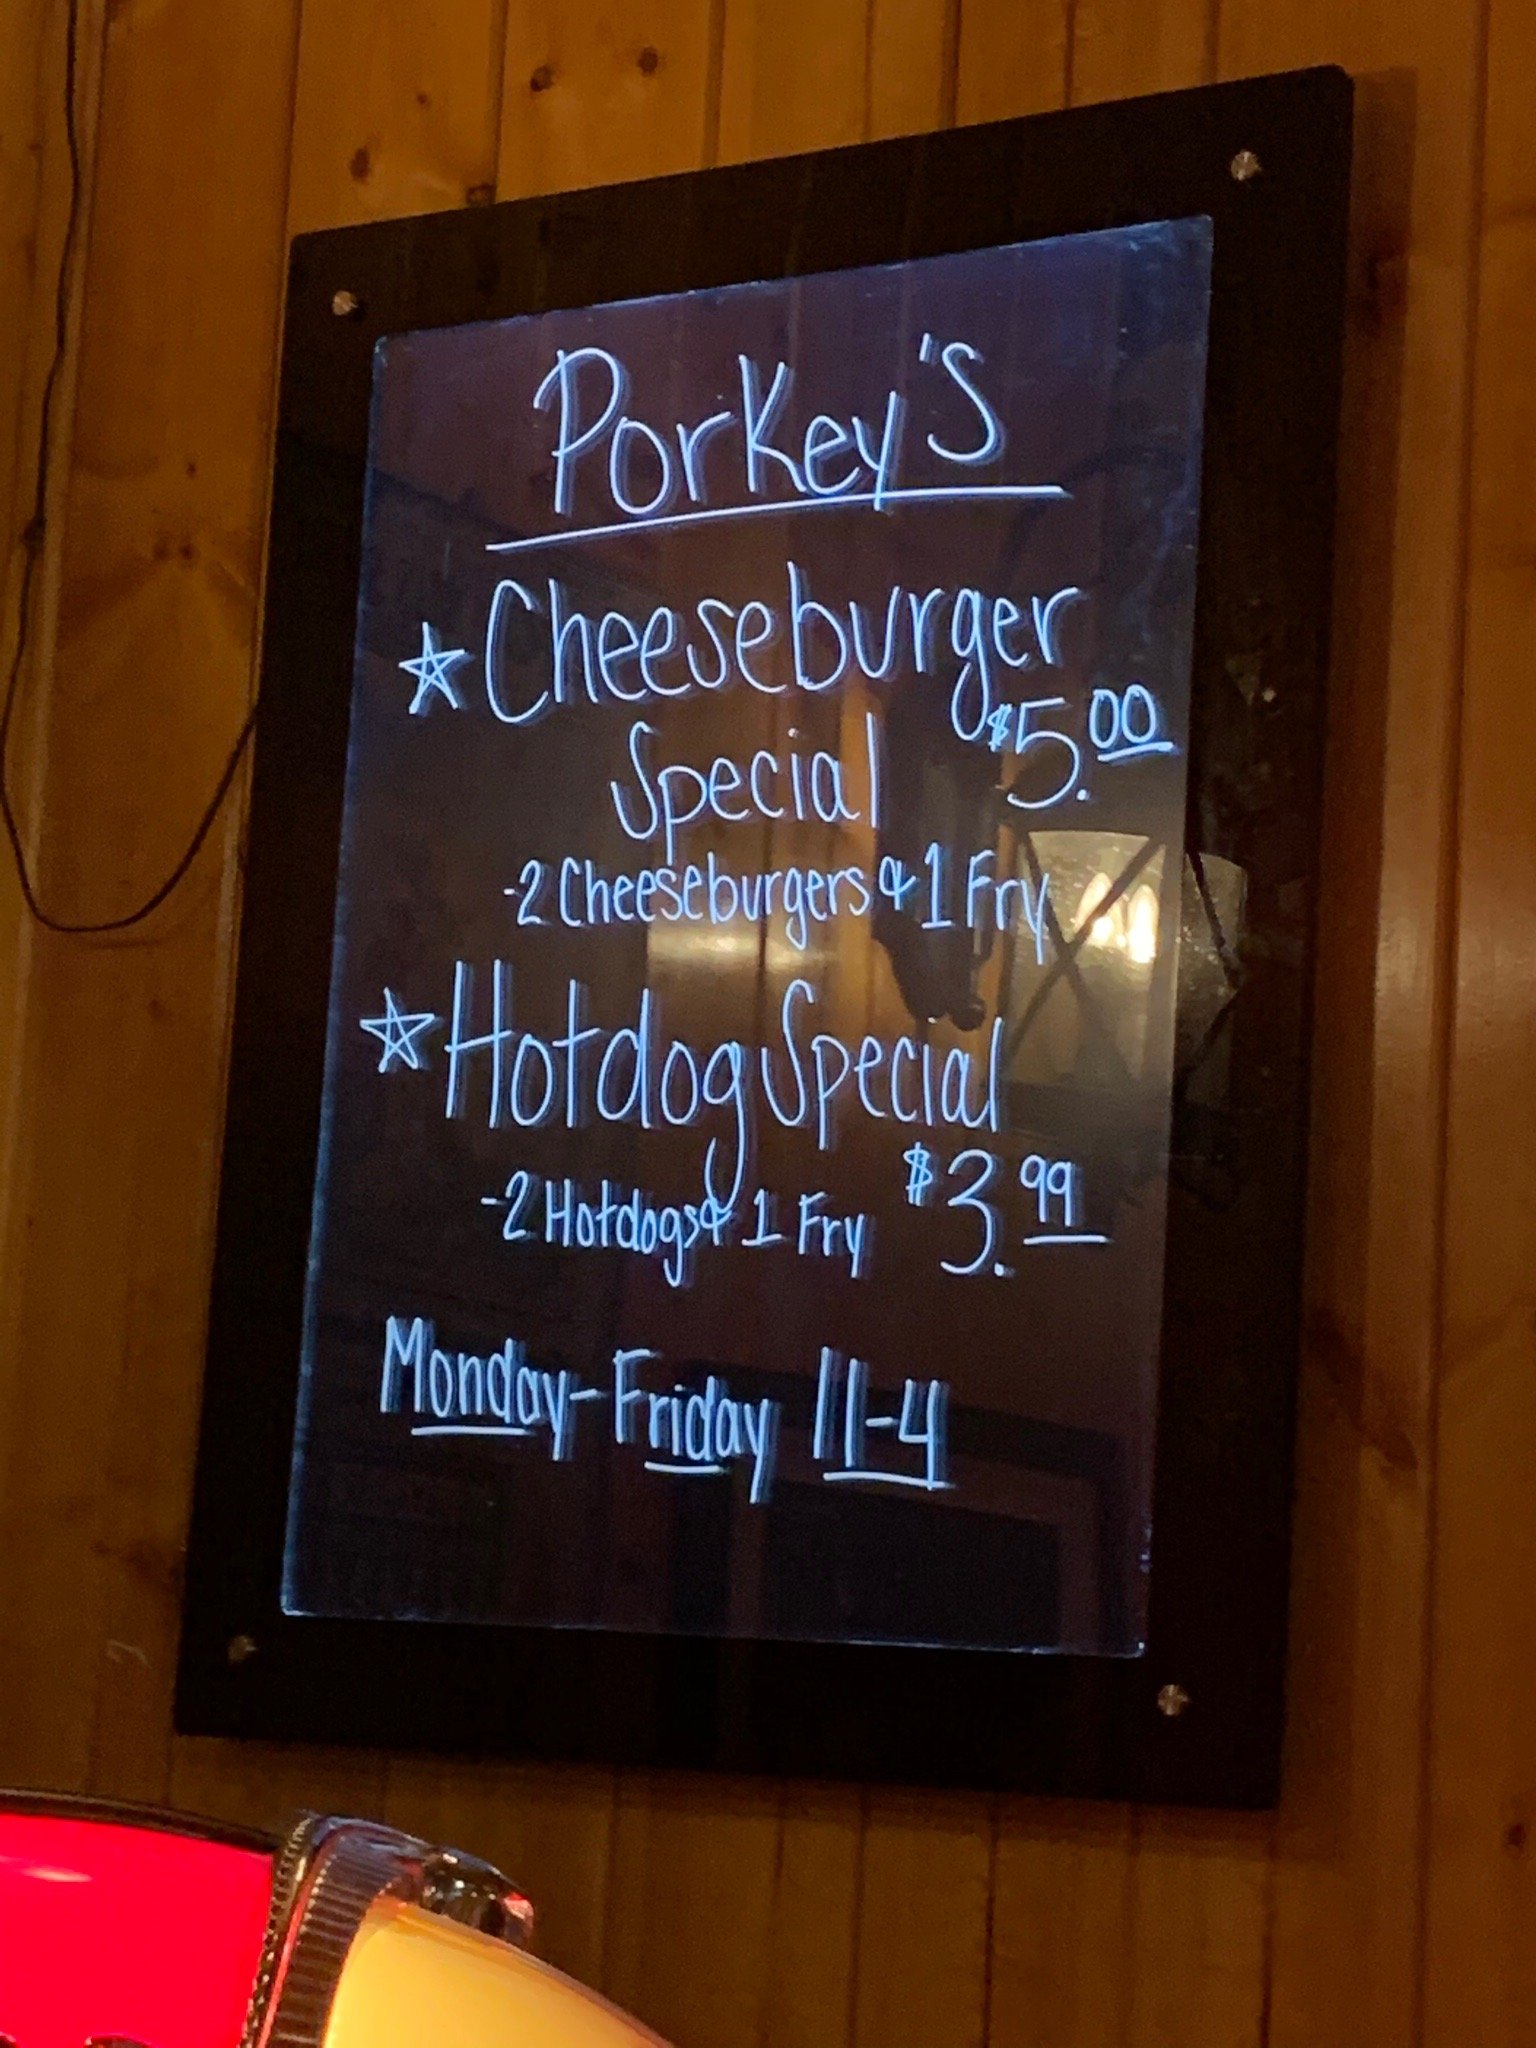 Porkey's
☆ Cheeseburger
Special $5.00
-2 Cheeseburgers & 1 Fry
☆ Hotdog Special
-2 Hotdogs & 1 Fry $3.99
Monday-Friday 11-4